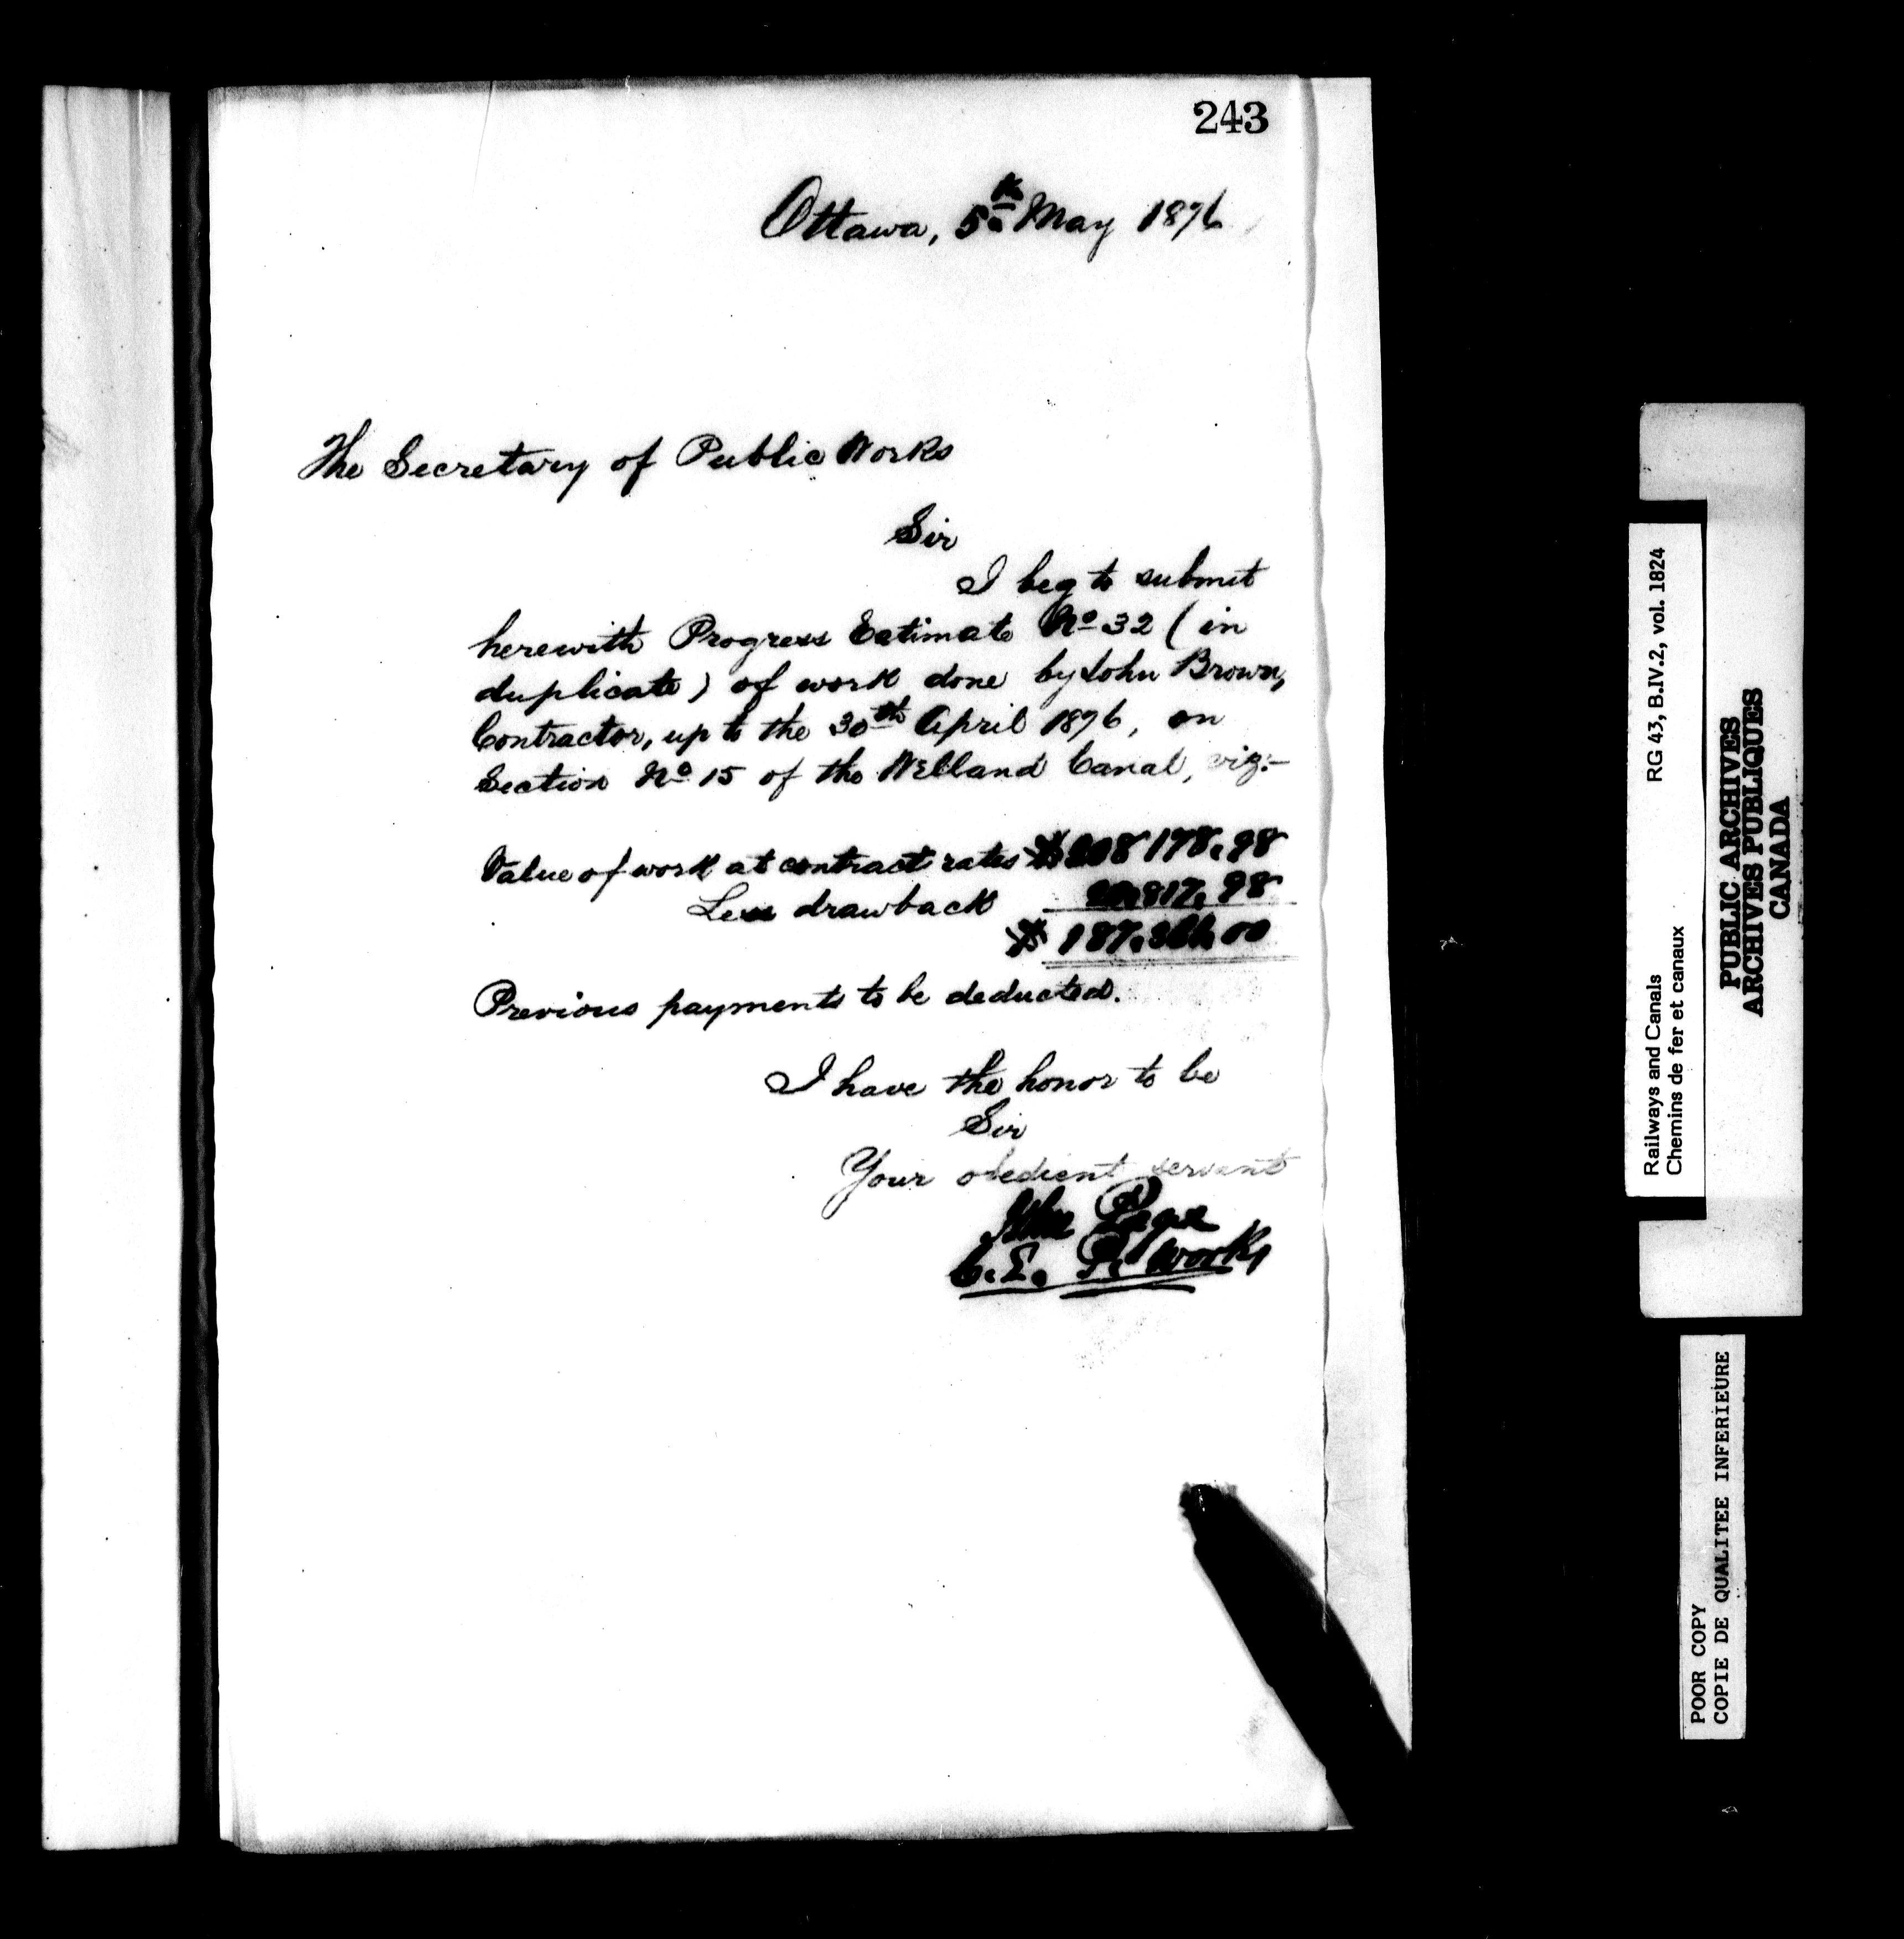 243
Ottawa, 5th May 1876
The Secretary of Public Works
Sir
I beg to submit
herewith Progress Estimate No 32 (in
duplicate) of work done by John Brown,
Contractor, up to the 30th April 1876, on
Section No 15 of the Welland Canal, viz:-
Value of work at contract rates $208178.98
Less drawback 20,817.98
$ 187,361.00
Previous payments to be deducted.
I have the honor to be
Sir
Your obedient servant
John Page
C.E. P. Works
Railways and Canals RG 43, B.IV.2, vol. 1824
Chemins de fer et canaux
PUBLIC ARCHIVES
ARCHIVES PUBLIQUES
CANADA
POOR COPY
COPIE DE QUALITEE INFERIEURE